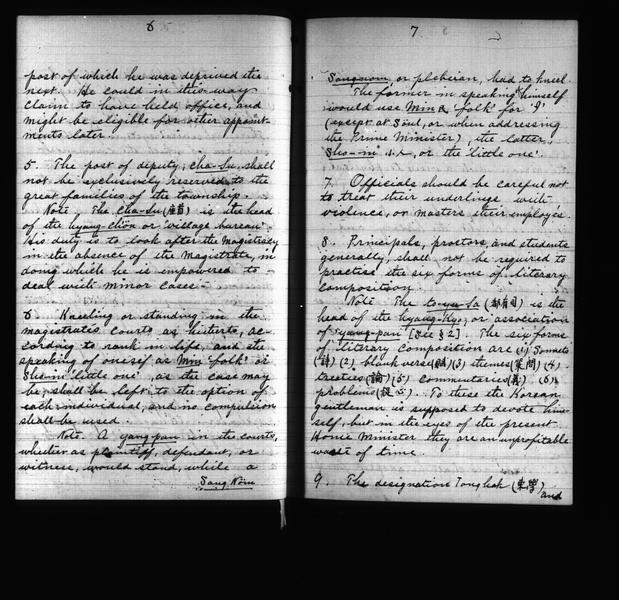 6
post of which he was deprived the
next. He could in this way
claim to have held office, and
might be eligible for other appoint-
ments later.
5. The post of deputy, cha-su, shall
not be exclusively reserved to the
great families of the township.
Note The Cha-su (座首) is the head
of the hyang-chön or 'village bureau'.
His duty is to look after the Magistracy
in the absence of the Magistrate, in
doing which he is empowered to
deal with minor cases.
6. Kneeling or standing in the
magistrates courts as hitherto, ac-
cording to rank in life, and the
speaking of oneself as Min 'folk' or
Sho-in 'little one', as the case may
be, shall be left to the option of
each individual, and no compulsion
shall be used.
Note. A yang-pan in the courts,
whether as plaintiff, defendant, or
witness, would stand, while a
Sang Nom
7
Sangnom, or plebeian, had to kneel.
The former in speaking of himself
would use Min 民 'folk' for 'I'
(except at Söul, or when addressing
the Prime Minister), the latter,
Sho-in 小人, or the 'little one'.
7. Officials should be careful not
to treat their underlings with
violence, or masters their employés.
8. Principals, proctors, and students
generally, shall not be required to
practise the six forms of literary
composition.
Note The to-yu-sa (都有司) is the
head of the hyang-kyo, or association
of yang-pan [See § 2]. The six forms
of literary composition are (1) Sonnets
(詩) (2) blank verse (賦) (3) themes (策問) (4)
treaties (論) (5) commentaries (義) (6)
problems To these the Korean
gentleman is supposed to devote him-
self, but in the eyes of the present
Home Minister they are an unprofitable
waste of time.
9. The designation Tonghak (東學)
and